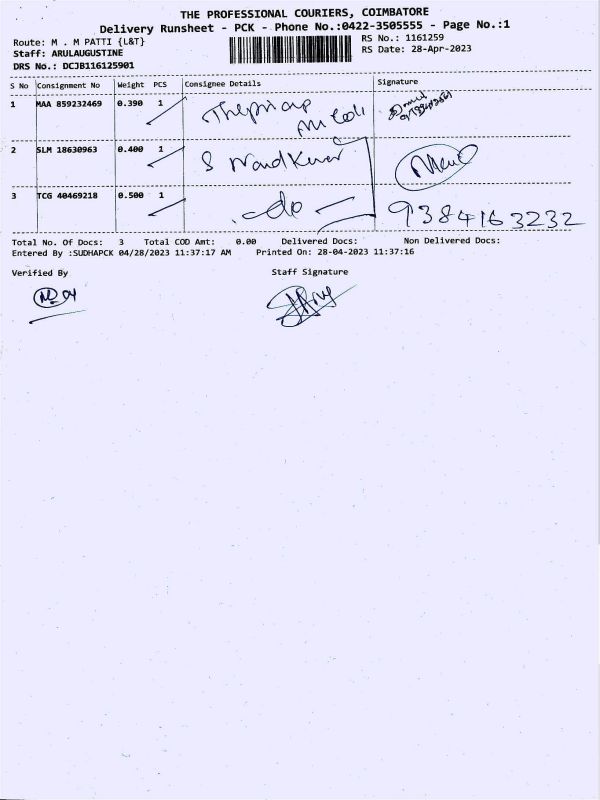 THE PROFESSIONAL COURIERS, COIMBATORE
Delivery Runsheet - PCK - Phone No.:0422-3505555 - Page No.:1
Route: M . M PATTI {L&T}
RS No.: 1161259
Staff: ARULAUGUSTINE
RS Date: 28-Apr-2023
DRS No.: DCJB116125901
S No Consignment No Weight PCS Consignee Details Signature
1 MAA 859232469 0.390 1
2 SLM 18630963 0.400 1 S Nand Kumar
3 TCG 40469218 0.500 1 -do- 9384163232
Total No. Of Docs: 3 Total COD Amt: 0.00 Delivered Docs: Non Delivered Docs:
Entered By :SUDHAPCK 04/28/2023 11:37:17 AM Printed On: 28-04-2023 11:37:16
Verified By Staff Signature